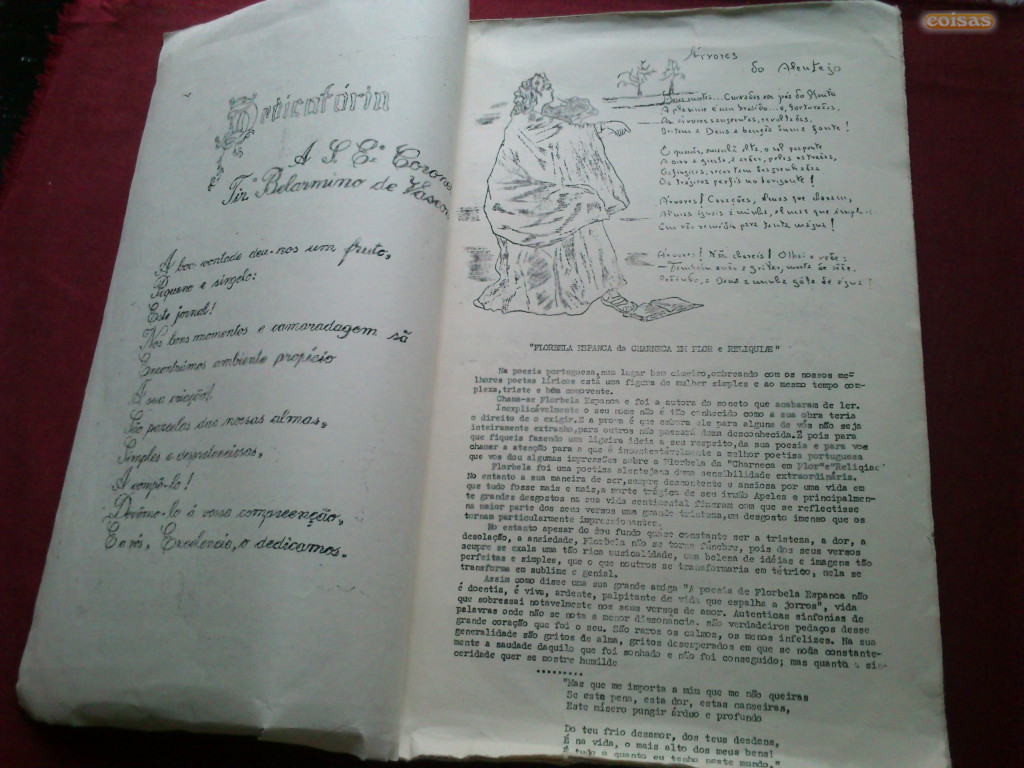 Dedicatória
A S. Exª Coron
Tir. Belarmino de Vascon
A boa vontade deu-nos um fruto,
Pequeno e singelo:
Este jornal!
Nos bons momentos e camaradagem sã
Encontrámos ambiente propício
À sua criação!
São parcelas das nossas almas,
Simples e despretenciosas,
A compô-lo!
Devêmo-lo à vossa compreenção,
E a vós, Excelencia, o dedicamos.
Árvores
do Alentejo
Horas mortas... Curvadas aos pés do Monte
A planície é um brasido... e, torturadas,
As árvores sangrentas, revoltadas,
Gritam a Deus a benção duma fonte!
E quando, manhã alta, o sol posponte
A oiro a giesta, a arder, pelas estradas,
Esfíngicas, recortam desgrenhadas
Os trágicos perfis no horizonte!
Árvores! Corações, almas que choram,
Almas iguais à minha, almas que imploram
Em vão remédio para tanta mágua!
Árvores! Não choreis! Olhai e vêde:
— Também ando a gritar, morta de sêde,
Pedindo a Deus a minha gôta de água!
"FLORBELA ESPANCA da CHARNECA EM FLOR e RELIQUIÆ"
Na poesia portuguesa,num lugar bem cimeiro,ombreando com os nossos me-
lhores poetas líricos está uma figura de mulher simples e ao mesmo tempo com-
plexa,triste e bem comovente.
Chama-se Florbela Espanca e foi a autora do soneto que acabaram de ler.
Inexplicávelmente o seu nome não é tão conhecido como a sua obra teria
o direito de o exigir.E a prova é que embora ele para alguns de vós não seja
inteiramente extranho,para outros não passará duma desconhecida.E pois para
que fiqueis fazendo uma ligeira ideia a seu respeito,da sua poesia e para vos
chamar a atenção para a que é incontestávelmente a melhor poetisa portuguesa
que vos dou algumas impressões sobre a Florbela da "Charneca em Flor"e"Reliqiae"
Florbela foi uma poetisa alentejana duma sensibilidade extraordinária.
No entanto a sua maneira de ser,sempre descontente e ansiosa por uma vida em
que tudo fosse mais e mais,a morte trágica de seu irmão Apeles e principalmen-
te grandes desgostos na sua vida sentimental fizeram com que se reflectisse
na maior parte dos seus versos uma grande tristeza,um desgosto imenso que os
tornam particularmente impressionantes.
No entanto apesar do seu fundo quáse constante ser a tristeza, a dor, a
desolação, a ansiedade, Florbela não se torna fúnebre, pois dos seus versos
sempre se exala uma tão rica musicalidade, uma beleza de idéias e imagens tão
perfeitas e simples, que o que noutros se transformaria em tétrico, nela se
transforma em sublime e genial.
Assim como disse uma sua grande amiga "A poesia de Florbela Espanca não
é doentia, é viva, ardente, palpitante de vida que espalha a jorros", vida
que sobressai notavelmente nos seus versos de amor. Autenticas sinfonias de
palavras onde não se nota a menor dissonancia. São verdadeiros pedaços desse
grande coração que foi o seu. São raros os calmos, os menos infelizes. Na sua
generalidade são gritos de alma, gritos desesperados em que se nota constante-
mente a saudade daquilo que foi sonhado e não foi conseguido; mas quanta a sin-
ceridade quer se mostre humilde
.........
"Mas que me importa a mim que me não queiras
Se esta pena, esta dor, estas canseiras,
Este mísero pungir árduo e profundo
Do teu frio desamor, dos teus desdens,
É na vida, o mais alto dos meus bens!
É tudo o quanto eu tenho neste mundo."
coisas